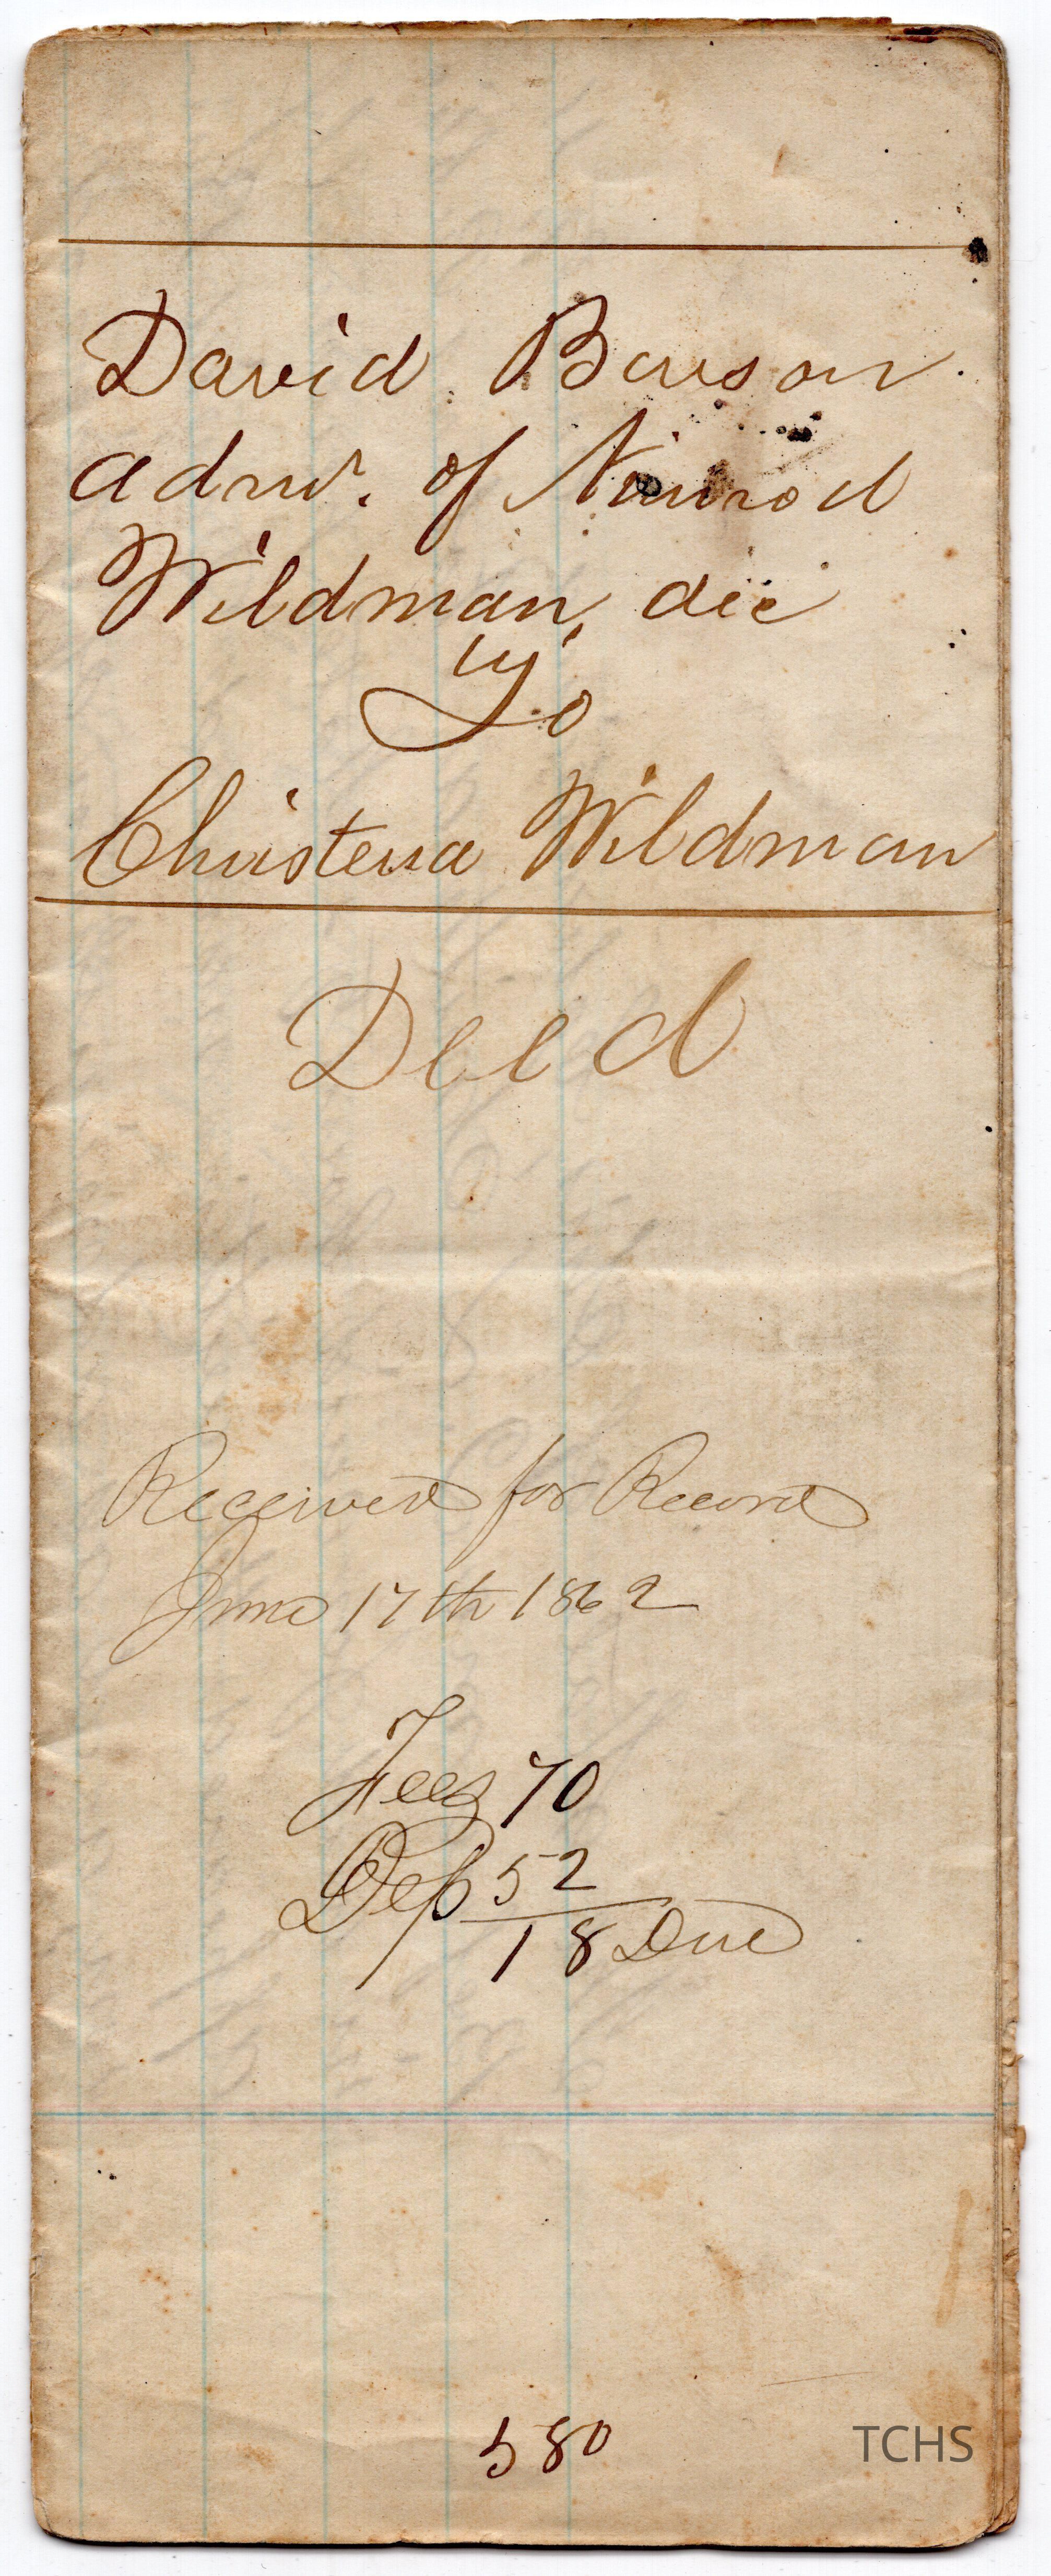 David Benson
adm<sup>r</sup>. of Nimrod
Wildman, dec
To
Christena Wildman
Deed
Received for Record
June 17th 1862
Fees 70
Dep 52
18 Due
580
TCHS